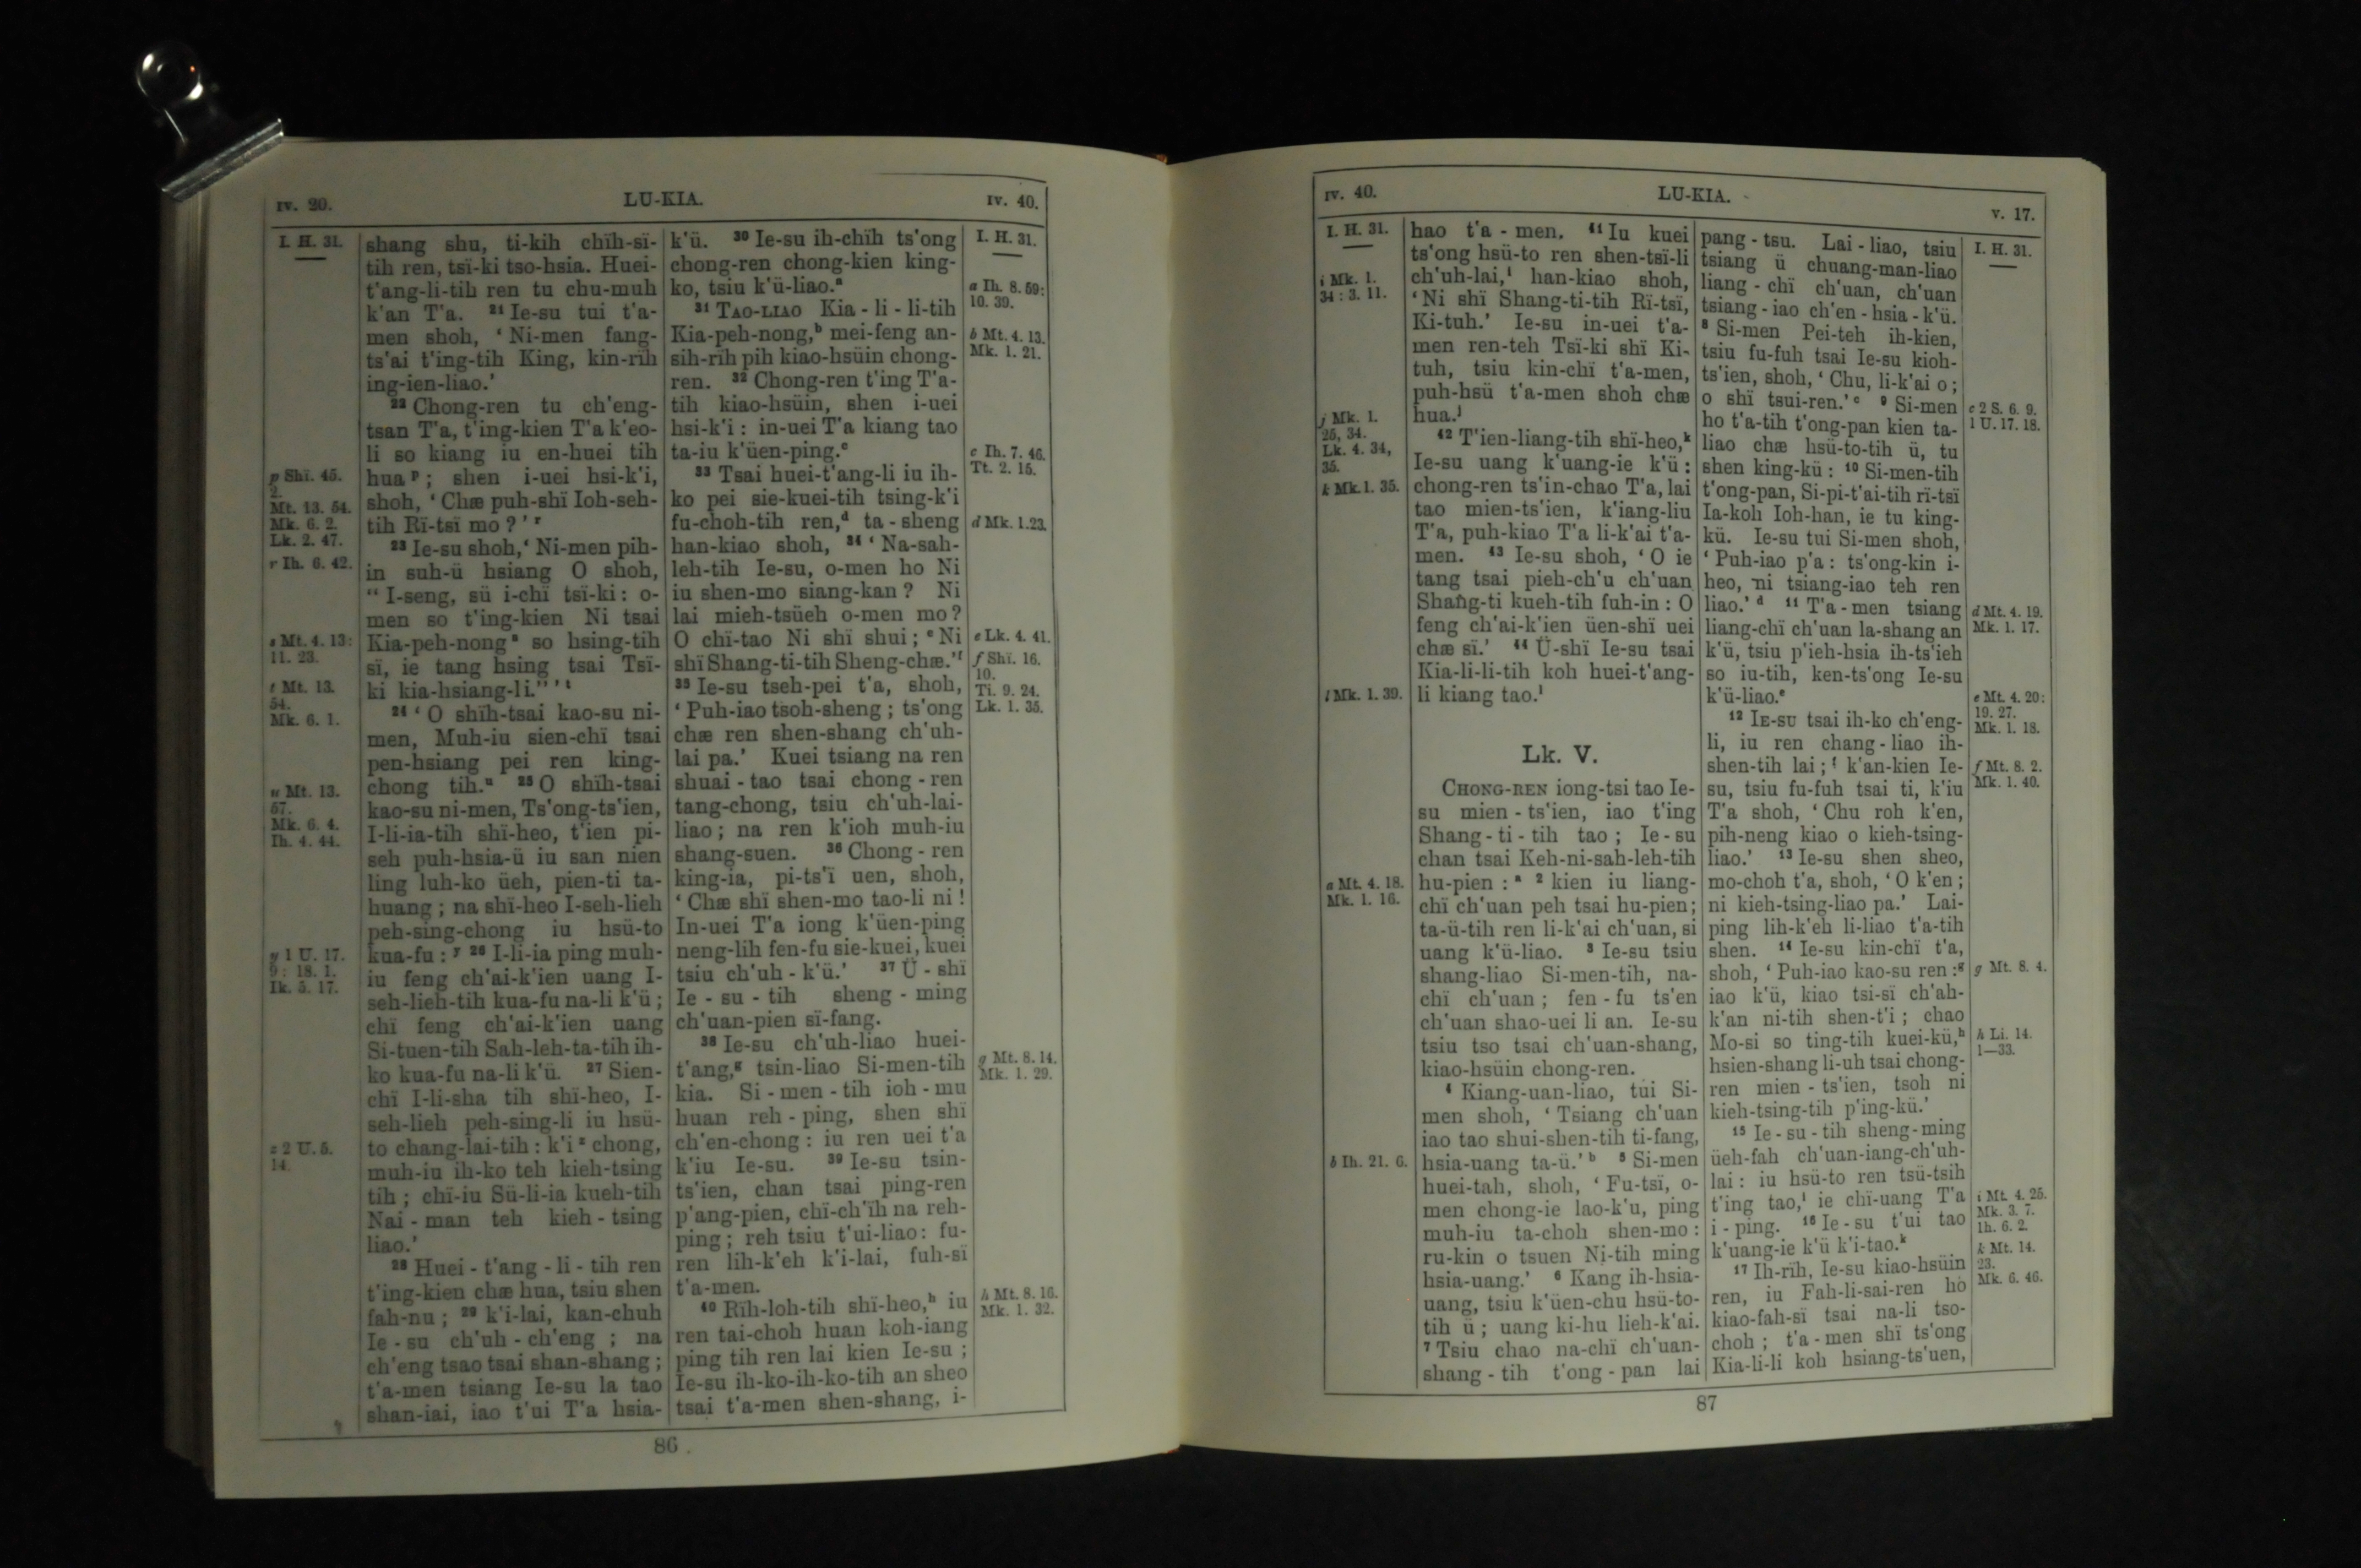 IV. 20.
LU-KIA.
IV. 40.
I. H. 31.
p Shï. 45.
2.
Mt. 13. 54.
Mk. 6. 2.
Lk. 2. 47.
r Ih. 6. 42.
s Mt. 4. 13:
11. 23.
t Mt. 13.
54.
Mk. 6. 1.
u Mt. 13.
57.
Mk. 6. 4.
Ih. 4. 44.
y 1 U. 17.
9: 18. 1.
Ik. 5. 17.
z 2 U. 5.
14.
shang shu, ti-kih chïh-sï-
tih ren, tsï-ki tso-hsia. Huei-
t'ang-li-tih ren tu chu-muh
k'an T'a. ²¹ Ie-su tui t'a-
men shoh, ‘ Ni-men fang-
ts'ai t'ing-tih King, kin-rïh
ing-ien-liao.’
²² Chong-ren tu ch'eng-
tsan T'a, t'ing-kien T'a k'eo-
li so kiang iu en-huei tih
hua ᵖ; shen i-uei hsi-k'i,
shoh, ‘ Chæ puh-shï Ioh-seh-
tih Rï-tsï mo ? ’ ʳ
²³ Ie-su shoh, ‘ Ni-men pih-
in suh-ü hsiang O shoh,
“ I-seng, sü i-chï tsï-ki: o-
men so t'ing-kien Ni tsai
Kia-peh-nong ˢ so hsing-tih
sï, ie tang hsing tsai Tsï-
ki kia-hsiang-li.” ’ ᵗ
²⁴ ‘ O shïh-tsai kao-su ni-
men, Muh-iu sien-chï tsai
pen-hsiang pei ren king-
chong tih.ᵘ ²⁵ O shïh-tsai
kao-su ni-men, Ts'ong-ts'ien,
I-li-ia-tih shï-heo, t'ien pi-
seh puh-hsia-ü iu san nien
ling luh-ko üeh, pien-ti ta-
huang ; na shï-heo I-seh-lieh
peh-sing-chong iu hsü-to
kua-fu : ʸ ²⁶ I-li-ia ping muh-
iu feng ch'ai-k'ien uang I-
seh-lieh-tih kua-fu na-li k'ü ;
chï feng ch'ai-k'ien uang
Si-tuen-tih Sah-leh-ta-tih ih-
ko kua-fu na-li k'ü. ²⁷ Sien-
chï I-li-sha tih shï-heo, I-
seh-lieh peh-sing-li iu hsü-
to chang-lai-tih : k'i ᶻ chong,
muh-iu ih-ko teh kieh-tsing
tih ; chï-iu Sü-li-ia kueh-tih
Nai - man teh kieh - tsing
liao.’
²⁸ Huei - t'ang - li - tih ren
t'ing-kien chæ hua, tsiu shen
fah-nu ; ²⁹ k'i-lai, kan-chuh
Ie - su ch'uh - ch'eng ; na
ch'eng tsao tsai shan-shang ;
t'a-men tsiang Ie-su la tao
shan-iai, iao t'ui T'a hsia-
k'ü. ³⁰ Ie-su ih-chïh ts'ong
chong-ren chong-kien king-
ko, tsiu k'ü-liao.ᵃ
³¹ TAO-LIAO Kia - li - li-tih
Kia-peh-nong,ᵇ mei-feng an-
sih-rïh pih kiao-hsüin chong-
ren. ³² Chong-ren t'ing T'a-
tih kiao-hsüin, shen i-uei
hsi-k'i : in-uei T'a kiang tao
ta-iu k'üen-ping.ᶜ
³³ Tsai huei-t'ang-li iu ih-
ko pei sie-kuei-tih tsing-k'i
fu-choh-tih ren,ᵈ ta - sheng
han-kiao shoh, ³⁴ ‘ Na-sah-
leh-tih Ie-su, o-men ho Ni
iu shen-mo siang-kan ? Ni
lai mieh-tsüeh o-men mo ?
O chï-tao Ni shï shui ; ᵉ Ni
shï Shang-ti-tih Sheng-chæ.’ᶠ
³⁵ Ie-su tseh-pei t'a, shoh,
‘ Puh-iao tsoh-sheng ; ts'ong
chæ ren shen-shang ch'uh-
lai pa.’ Kuei tsiang na ren
shuai - tao tsai chong - ren
tang-chong, tsiu ch'uh-lai-
liao ; na ren k'ioh muh-iu
shang-suen. ³⁶ Chong - ren
king-ia, pi-ts'ï uen, shoh,
‘ Chæ shï shen-mo tao-li ni !
In-uei T'a iong k'üen-ping
neng-lih fen-fu sie-kuei, kuei
tsiu ch'uh - k'ü.’ ³⁷ Ü - shï
Ie - su - tih sheng - ming
ch'uan-pien sï-fang.
³⁸ Ie-su ch'uh-liao huei-
t'ang,ᵍ tsin-liao Si-men-tih
kia. Si - men - tih ioh - mu
huan reh - ping, shen shï
ch'en-chong : iu ren uei t'a
k'iu Ie-su. ³⁹ Ie-su tsin-
ts'ien, chan tsai ping-ren
p'ang-pien, chï-ch'ïh na reh-
ping ; reh tsiu t'ui-liao : fu-
ren lih-k'eh k'i-lai, fuh-sï
t'a-men.
⁴⁰ Rïh-loh-tih shï-heo,ʰ iu
ren tai-choh huan koh-iang
ping tih ren lai kien Ie-su ;
Ie-su ih-ko-ih-ko-tih an sheo
tsai t'a-men shen-shang, i-
I. H. 31.
a Ih. 8. 59:
10. 39.
b Mt. 4. 13.
Mk. 1. 21.
c Ih. 7. 46.
Tt. 2. 15.
d Mk. 1. 23.
e Lk. 4. 41.
f Shï. 16.
10.
Ti. 9. 24.
Lk. 1. 35.
g Mt. 8. 14.
Mk. 1. 29.
h Mt. 8. 16.
Mk. 1. 32.
86
IV. 40.
LU-KIA.
V. 17.
I. H. 31.
i Mk. 1.
34 : 3. 11.
j Mk. 1.
25, 34.
Lk. 4. 34,
35.
k Mk. 1. 35.
l Mk. 1. 39.
a Mt. 4. 18.
Mk. 1. 16.
b Ih. 21. 6.
hao t'a - men. ⁴¹ Iu kuei
ts'ong hsü-to ren shen-tsï-li
ch'uh-lai,ⁱ han-kiao shoh,
‘ Ni shï Shang-ti-tih Rï-tsï,
Ki-tuh.’ Ie-su in-uei t'a-
men ren-teh Tsï-ki shï Ki-
tuh, tsiu kin-chï t'a-men,
puh-hsü t'a-men shoh chæ
hua.ʲ
⁴² T'ien-liang-tih shï-heo,ᵏ
Ie-su uang k'uang-ie k'ü :
chong-ren ts'in-chao T'a, lai
tao mien-ts'ien, k'iang-liu
T'a, puh-kiao T'a li-k'ai t'a-
men. ⁴³ Ie-su shoh, ‘ O ie
tang tsai pieh-ch'u ch'uan
Shang-ti kueh-tih fuh-in : O
feng ch'ai-k'ien üen-shï uei
chæ sï.’ ⁴⁴ Ü-shï Ie-su tsai
Kia-li-li-tih koh huei-t'ang-
li kiang tao.ˡ
Lk. V.
CHONG-REN iong-tsi tao Ie-
su mien - ts'ien, iao t'ing
Shang - ti - tih tao ; Ie - su
chan tsai Keh-ni-sah-leh-tih
hu-pien : ᵃ ² kien iu liang-
chï ch'uan peh tsai hu-pien ;
ta-ü-tih ren li-k'ai ch'uan, si
uang k'ü-liao. ³ Ie-su tsiu
shang-liao Si-men-tih, na-
chï ch'uan ; fen - fu ts'en
ch'uan shao-uei li an. Ie-su
tsiu tso tsai ch'uan-shang,
kiao-hsüin chong-ren.
⁴ Kiang-uan-liao, tui Si-
men shoh, ‘ Tsiang ch'uan
iao tao shui-shen-tih ti-fang,
hsia-uang ta-ü.’ ᵇ ⁵ Si-men
huei-tah, shoh, ‘ Fu-tsï, o-
men chong-ie lao-k'u, ping
muh-iu ta-choh shen-mo :
ru-kin o tsuen Ni-tih ming
hsia-uang.’ ⁶ Kang ih-hsia-
uang, tsiu k'üen-chu hsü-to-
tih ü ; uang ki-hu lieh-k'ai.
⁷ Tsiu chao na-chï ch'uan-
shang - tih t'ong - pan lai
pang - tsu. Lai - liao, tsiu
tsiang ü chuang-man-liao
liang - chï ch'uan, ch'uan
tsiang - iao ch'en - hsia - k'ü.
⁸ Si-men Pei-teh ih-kien,
tsiu fu-fuh tsai Ie-su kioh-
ts'ien, shoh, ‘ Chu, li-k'ai o ;
o shï tsui-ren.’ ᶜ ⁹ Si-men
ho t'a-tih t'ong-pan kien ta-
liao chæ hsü-to-tih ü, tu
shen king-kü : ¹⁰ Si-men-tih
t'ong-pan, Si-pi-t'ai-tih rï-tsï
Ia-koh Ioh-han, ie tu king-
kü. Ie-su tui Si-men shoh,
‘ Puh-iao p'a : ts'ong-kin i-
heo, ni tsiang-iao teh ren
liao.’ ᵈ ¹¹ T'a - men tsiang
liang-chï ch'uan la-shang an
k'ü, tsiu p'ieh-hsia ih-ts'ieh
so iu-tih, ken-ts'ong Ie-su
k'ü-liao.ᵉ
¹² IE-SU tsai ih-ko ch'eng-
li, iu ren chang - liao ih-
shen-tih lai ; ᶠ k'an-kien Ie-
su, tsiu fu-fuh tsai ti, k'iu
T'a shoh, ‘ Chu roh k'en,
pih-neng kiao o kieh-tsing-
liao.’ ¹³ Ie-su shen sheo,
mo-choh t'a, shoh, ‘ O k'en ;
ni kieh-tsing-liao pa.’ Lai-
ping lih-k'eh li-liao t'a-tih
shen. ¹⁴ Ie-su kin-chï t'a,
shoh, ‘ Puh-iao kao-su ren :ᵍ
iao k'ü, kiao tsi-sï ch'ah-
k'an ni-tih shen-t'i ; chao
Mo-si so ting-tih kuei-kü,ʰ
hsien-shang li-uh tsai chong-
ren mien - ts'ien, tsoh ni
kieh-tsing-tih p'ing-kü.’
¹⁵ Ie - su - tih sheng - ming
üeh-fah ch'uan-iang-ch'uh-
lai : iu hsü-to ren tsü-tsih
t'ing tao,ⁱ ie chï-uang T'a
i - ping. ¹⁶ Ie - su t'ui tao
k'uang-ie k'ü k'i-tao.ᵏ
¹⁷ Ih-rïh, Ie-su kiao-hsüin
ren, iu Fah-li-sai-ren ho
kiao-fah-sï tsai na-li tso-
choh ; t'a - men shï ts'ong
Kia-li-li koh hsiang-ts'uen,
I. H. 31.
c 2 S. 6. 9.
1 U. 17. 18.
d Mt. 4. 19.
Mk. 1. 17.
e Mt. 4. 20:
19. 27.
Mk. 1. 18.
f Mt. 8. 2.
Mk. 1. 40.
g Mt. 8. 4.
h Li. 14.
1—33.
i Mt. 4. 25.
Mk. 3. 7.
Ih. 6. 2.
k Mt. 14.
23.
Mk. 6. 46.
87